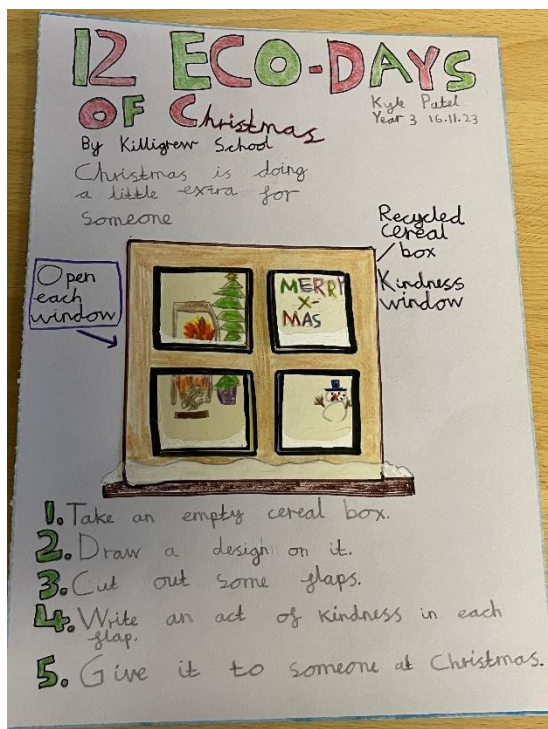 12 ECO-DAYS
OF Christmas
Kyle Patel
Year 3 16.11.23
By Killigrew School
Christmas is doing
a little extra for
someone
Open
each
window
MERRY
X-
MAS
Recycled
cereal
box
Kindness
window
1. Take an empty cereal box.
2. Draw a design on it.
3. Cut out some flaps.
4. Write an act of kindness in each
flap.
5. Give it to someone at Christmas.